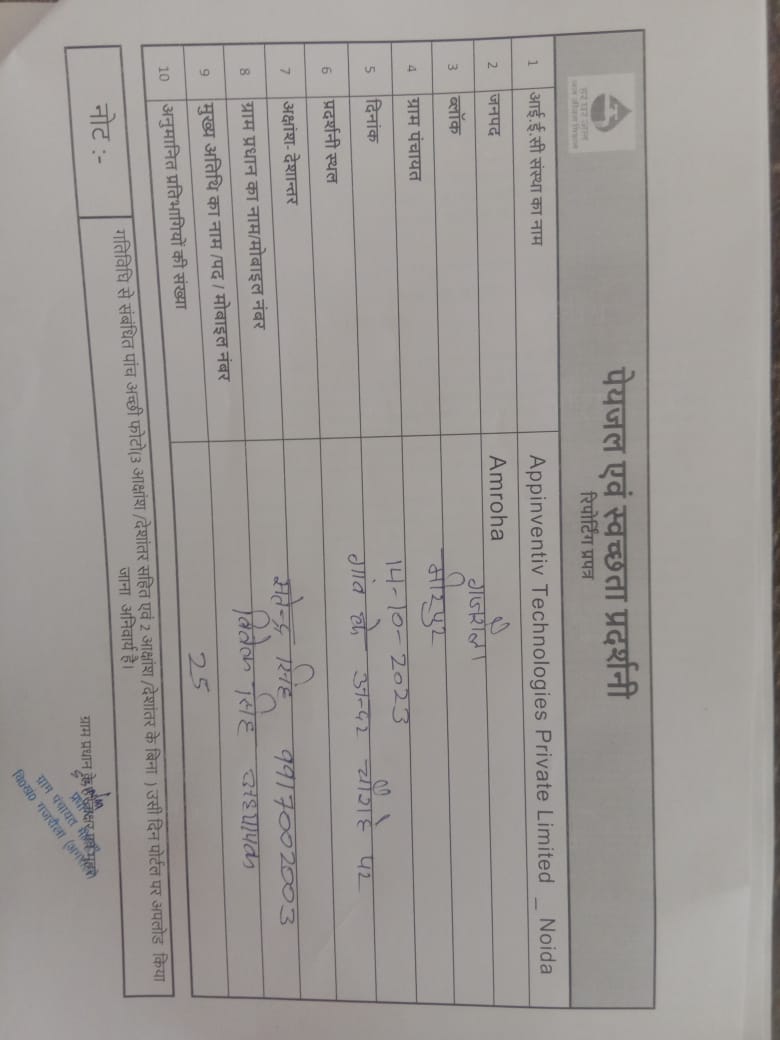 हर घर जल
जल जीवन मिशन
पेयजल एवं स्वच्छता प्रदर्शनी
रिपोर्टिंग प्रपत्र
1 आई.ई.सी संस्था का नाम Appinventiv Technologies Private Limited _ Noida
2 जनपद Amroha
3 ब्लॉक गजरौला
4 ग्राम पंचायत मीरपुर
5 दिनांक 14-10-2023
6 प्रदर्शनी स्थल गांव के ऊपर चौराहे पर
7 अक्षांश- देशान्तर
8 ग्राम प्रधान का नाम/मोबाइल नंबर सिंह 9917002003
9 मुख्य अतिथि का नाम /पद / मोबाइल नंबर विवेक सिंह
10 अनुमानित प्रतिभागियों की संख्या 25
नोट :- गतिविधि से संबंधित पांच अच्छी फोटो(3 आक्षांश /देशांतर सहित एवं 2 आक्षांश /देशांतर के बिना ) उसी दिन पोर्टल पर अपलोड किया
जाना अनिवार्य है।
ग्राम प्रधान के हस्ताक्षर एवं मुहर
ग्राम पंचायत
वि०ख० गजरौला (अमरोहा)